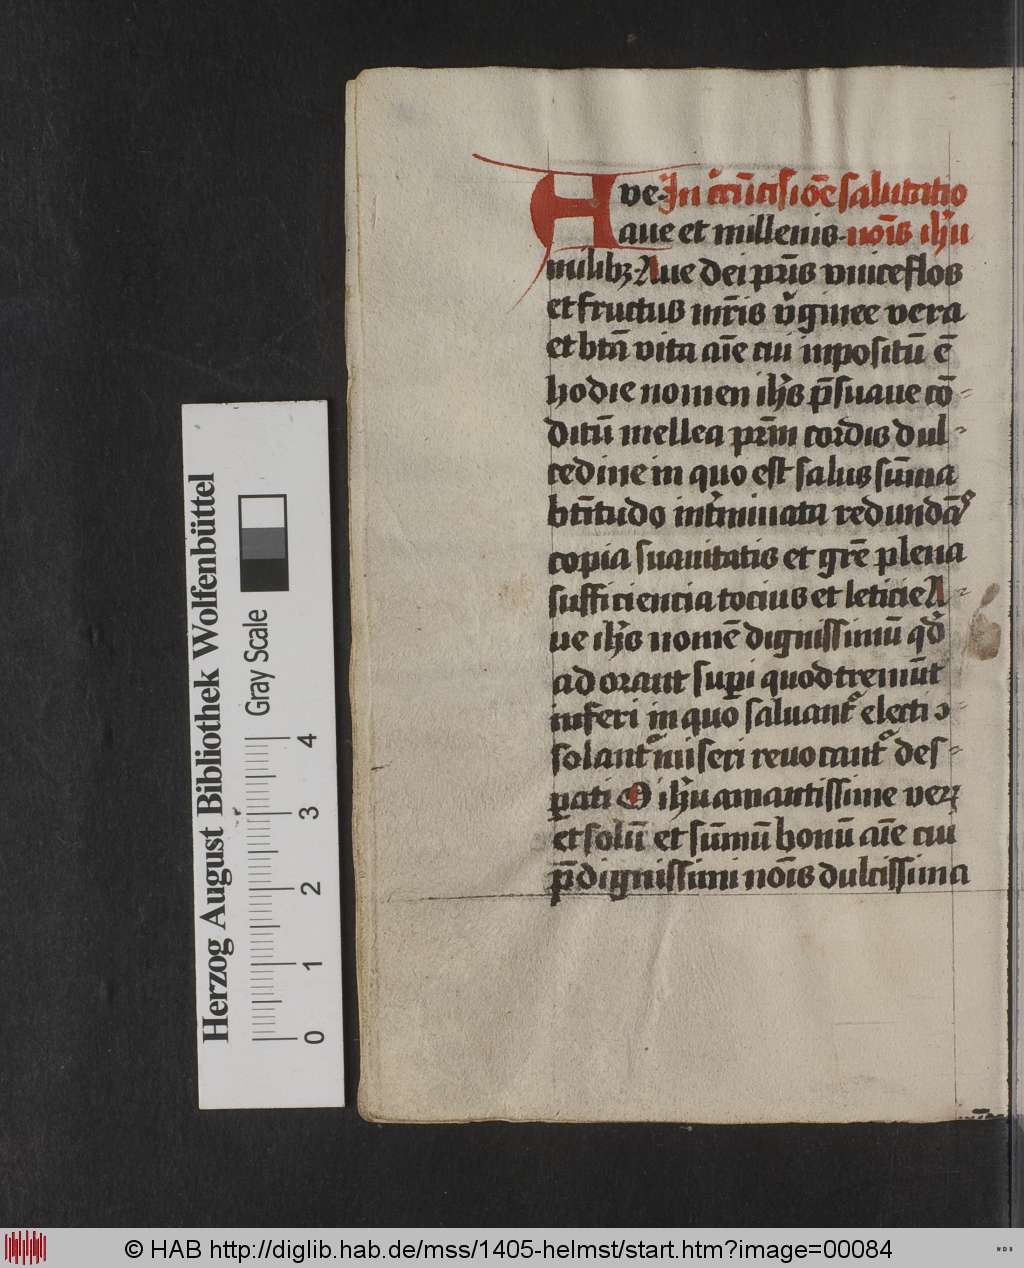 Ave. In c̾cu̅cisio̅e salutatio
aue et millenis. noi̅s ih̅u
milibꝫ. Aue dei pr̅is vnice flos
et fructus mr̅is v̾ginee vera
et bt̅a vita ai̅e cui inpositu̅ e̅
hodie nomen ih̅s p̅suaue co̅-
ditu̅ mellea pr̅ni cordis dul-
cedine in quo est salus su̅ma
bt̅itudo int̾minata redunda̅s
copia suauitatis et gr̅e plena
sufficiencia tocius et leticie A-
ue ih̅s nome̅ dignissimu̅ qd̾
adorant sup̲i quod tremu̅t
inferi in quo saluant᷑ electi ↄ-
solant᷑ miseri reuocant᷑ des-
ꝑati O ih̅u amantissime veꝝ
et solu̅ et su̅mu̅ bonu̅ ai̅e cui
p̅ dignissimi noi̅s dulcissima
Herzog August Bibliothek Wolfenbüttel
Gray Scale
0 1 2 3 4
© HAB http://diglib.hab.de/mss/1405-helmst/start.htm?image=00084